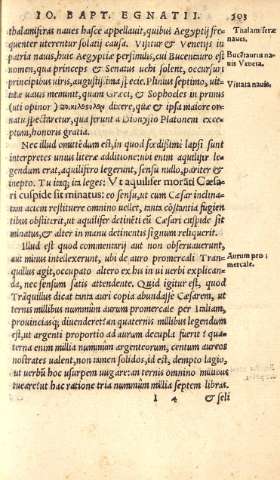 IO. BAPT. EGNATII. 293
thalamiferas naues hasce appellauit, quibus Aegyptij fre
quenter uterentur solatij causa. Visitur & Venetijs in
patria nauis, huic Aegyptiæ persimilis, cui Bucentauro est
nomen, qua princeps & Senatus uehi solent, occursuri
principibus uiris, augustissima specie. Plinius septimo, ui-
uatas naues meminit, quam Græci, & Sophocles in primis
(uti opinor) dicere, quæ & ipsa maiore or-
natu spectaretur, qua ferunt a Dionysio Platonem excep-
tum, honoris gratia.
Nec illud omittēdum est, in quod fœdissime lapsi sunt
interpretes unius literæ additione: nam enim aquilifer le-
gendum erat, aquilifero legerunt, sensu nullo, pariter &
inepto. Tu itaq; ita leges: Vt aquilifer moràti Cæsa-
ri cuspide sit minatus: eo sensu, ut cum Cæsar inclina-
tam aciem restituere omnino uellet, inita cōstantia fugien
tibus obstiterit, ut aquilifer detinēti eū Cæsari cuspide sit
minatus, & alter in manu detinentis signum reliquerit.
Illud est quod commentarij aut non obseruauerunt,
aut minus intellexerunt, ubi de auro promercali Tran-
quillus agit, occupato altero ex hu in ui uerbi explican-
da, nec sensum satis attendente. Quid igitur est, quod
Trāquillus dicat tanta auri copia abundasse Cæsarem, ut
ternis millibus nummûm aurum promercale per Italiam,
prouinciasq; diuenderet: an quaternis millibus legendum
est, ut argenti proportio ad aurum decupla fuerit? qua-
terna enim millia nummûm argenteorum, centum aureos
nostrates ualent, non tamen solidos, id est, dempto lagio,
ut uerbū hoc usurpem uulgare: an ternis omnino millibus
tueretur hac ratione tria nummûm millia septem libras.
I 4 & seli
Thalamiferæ
naues.
Bucētaurus na-
uis Veneta.
Vistata nauis.
Aurum pro
mercale.